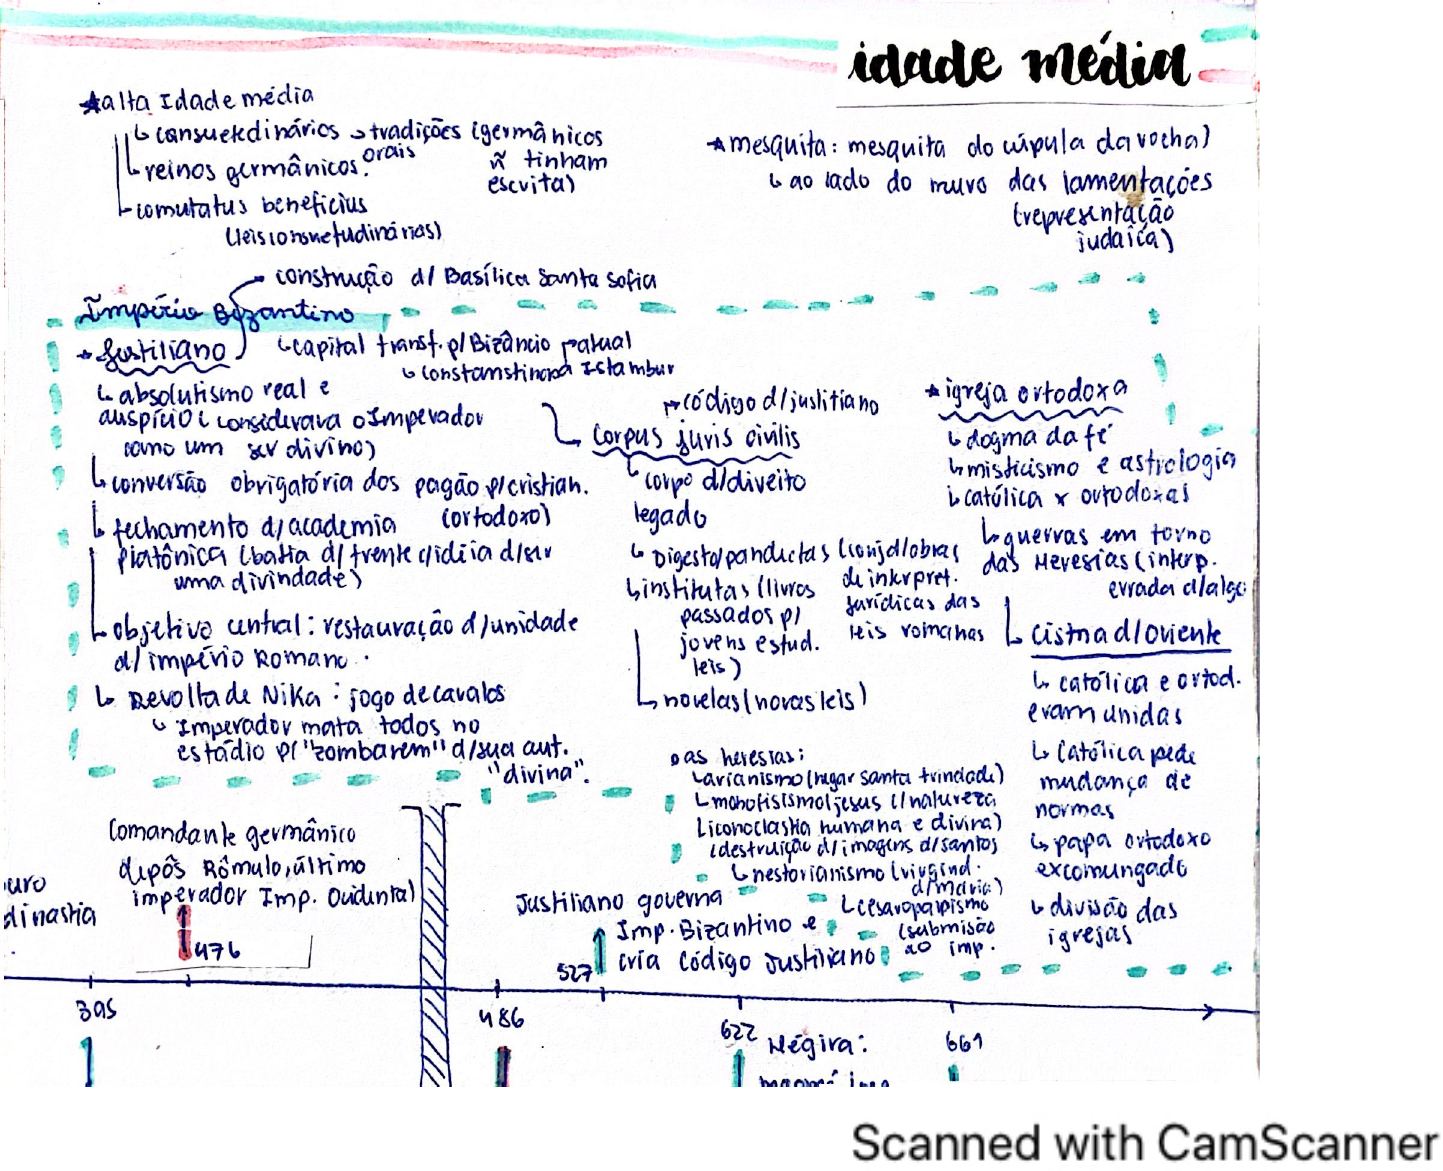 idade média
★alta Idade média
↳ consuetedinários → tradições (germânicos
orais
↳ reinos germânicos.
ñ tinham
escrita)
↳ comutatus beneficius
(leis consuetudinárias)
★mesquita: mesquita do cúpula da rocha)
↳ ao lado do muro das lamentações
(representação
judaíca)
construção d/ Basílica Santa Sofia
Império Bizantino
★ Justiliano
↳ capital transf. p/ Bizâncio → atual
↳ constanstinopla Istambur
↳ absolutismo real e
auspício (considerava o Imperador
como um ser divino)
↳ conversão obrigatória dos pagão p/ cristian.
(ortodoxo)
↳ fechamento d/ academia
platônica (batia d/ frente c/ idéia d/ ser
uma divindade)
↳ objetivo central: restauração d/ unidade
d/ império Romano.
↳ Revolta de Nika: jogo de cavalos
↳ Imperador mata todos no
estádio p/ "zombarem" d/ sua aut.
"divina".
→ código d/ justitiano
Corpus juris civilis
↳ corpo d/ direito
legado
↳ Digesto/pandectas (conj d/ obras
de interpret.
jurídicas das
leis romanas
↳ institutas (livros
passados p/
jovens estud.
leis)
↳ novelas (novas leis)
★ igreja ortodoxa
↳ dogma da fé
↳ misticismo e astrologia
↳ católica x ortodoxas
↳ guerras em torno
das Heresias (interp.
errada d/ algo
↳ Cisma d/ Oriente
↳ católica e ortod.
eram unidas
↳ Católica pede
mudança de
normas
↳ papa ortodoxo
excomungado
↳ divisão das
igrejas
as heresias:
↳ arianismo (negar santa trindade)
↳ monofisismo (jesus c/ natureza
humana e divina)
iconoclastia
(destruição d/ imagens d/ santos
↳ nestorianismo (virgind.
d/ Maria)
↳ cesaropapismo
(submisão
ao imp.
Comandante germânico
depôs Rômulo, último
imperador Imp. Ocidental)
476
dinastia
.
Justiliano governa
Imp. Bizantino e
cria Código Justiliano
527
395
486
622
Hégira:
661
Scanned with CamScanner